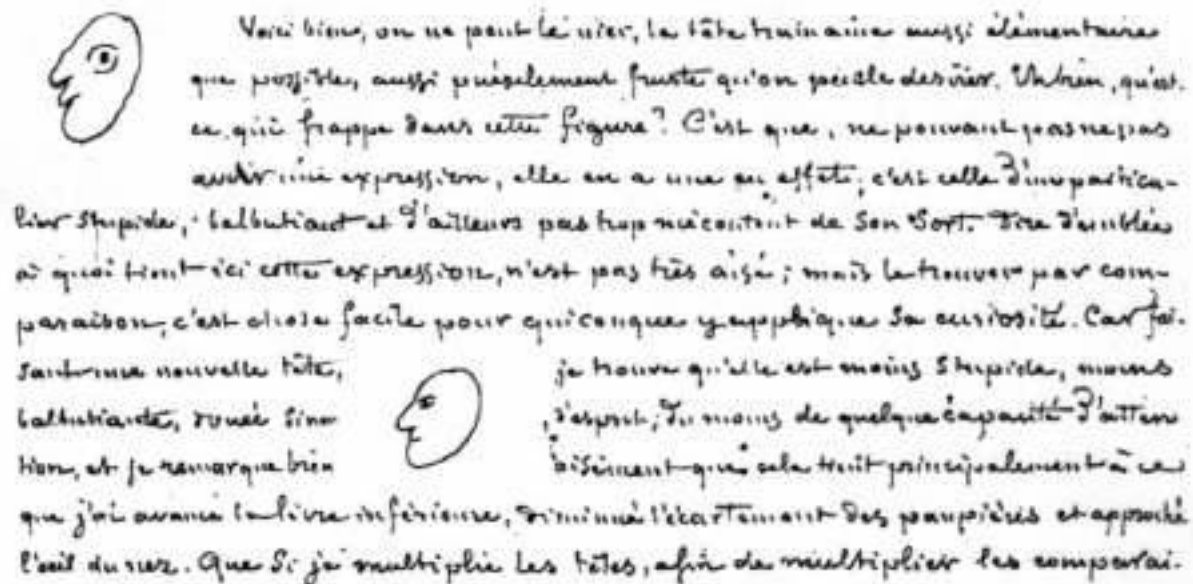 Voici bien, on ne peut le nier, la tête humaine aussi élémentaire
que possible, aussi puérilement fruste qu'on puisse le désirer. Eh bien, qu'est-
ce qui frappe dans cette figure? C'est que, ne pouvant pas ne pas
avoir une expression, elle en a une en effet; c'est celle d'un particu-
lier stupide, balbutiant et d'ailleurs pas trop mécontent de son sort. Dire d'emblée
à quoi tient ici cette expression, n'est pas très aisé; mais le trouver par com-
paraison, c'est chose facile pour quiconque y applique sa curiosité. Car fai-
sant une nouvelle tête, je trouve qu'elle est moins stupide, moins
balbutiante, douée sinon d'esprit, du moins de quelque capacité d'atten
tion, et je remarque bien aisément que cela tient principalement à ce
que j'ai avancé la lèvre inférieure, diminué l'écartement des paupières et approché
l'œil du nez. Que si je multiplie les têtes, afin de multiplier les comparai-